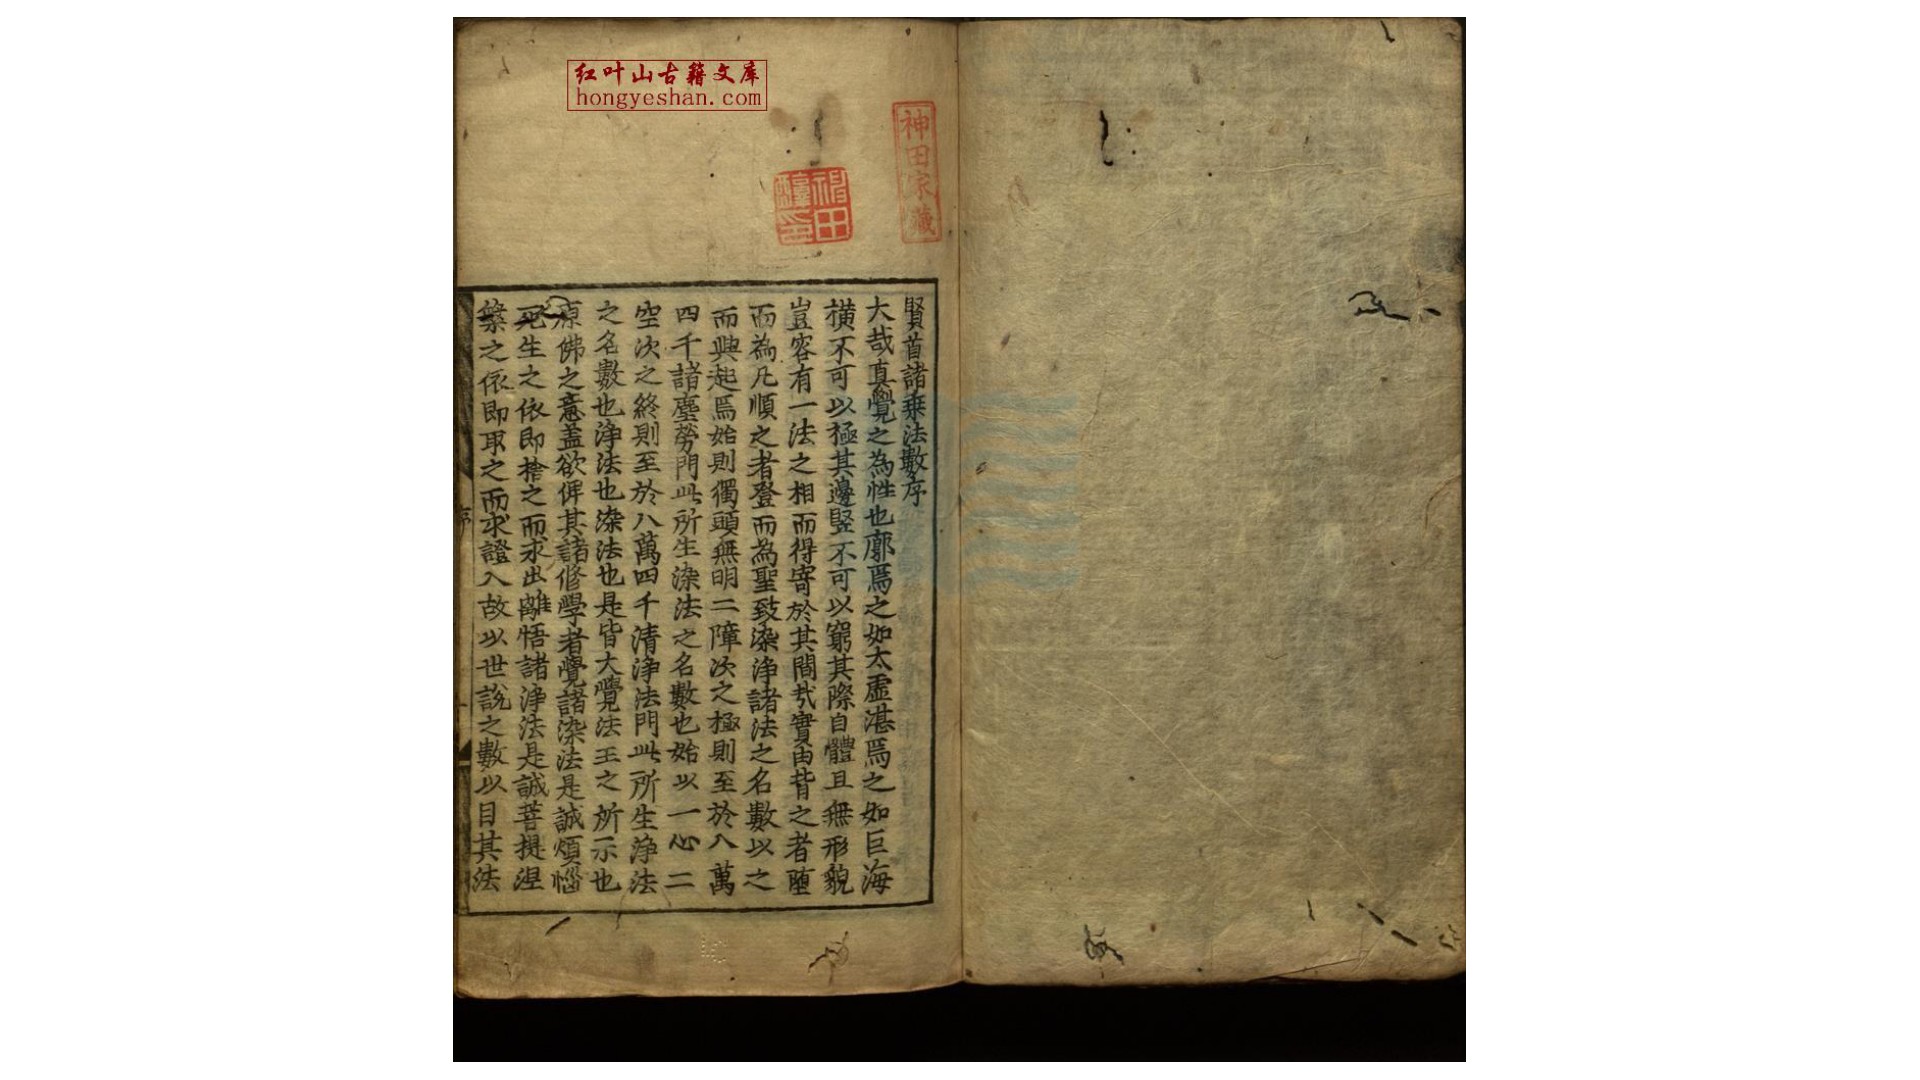 红叶山古籍文库
hongyeshan.com
神田家藏
賢首諸乗法數序
大哉真覺之為性也廓焉之如太虛湛焉之如巨海
橫不可以極其邊竪不可以窮其際自體且無形貌
豈容有一法之相而得寄於其間㢤實由背之者墮
而為凡順之者登而為聖致染淨諸法之名數以之
而興起焉始則獨頭無明二障次之極則至於八萬
四千諸塵勞門此所生染法之名數也始以一心二
空次之終則至於八萬四千清淨法門此所生淨法
之名數也淨法也染法也是皆大覺法王之所示也
原佛之意盖欲俾其諸修學者覺諸染法是誠煩惱
死生之依即捨之而求出離悟諸淨法是誠菩提涅
槃之依即取之而求證入故以世說之數以目其法
序